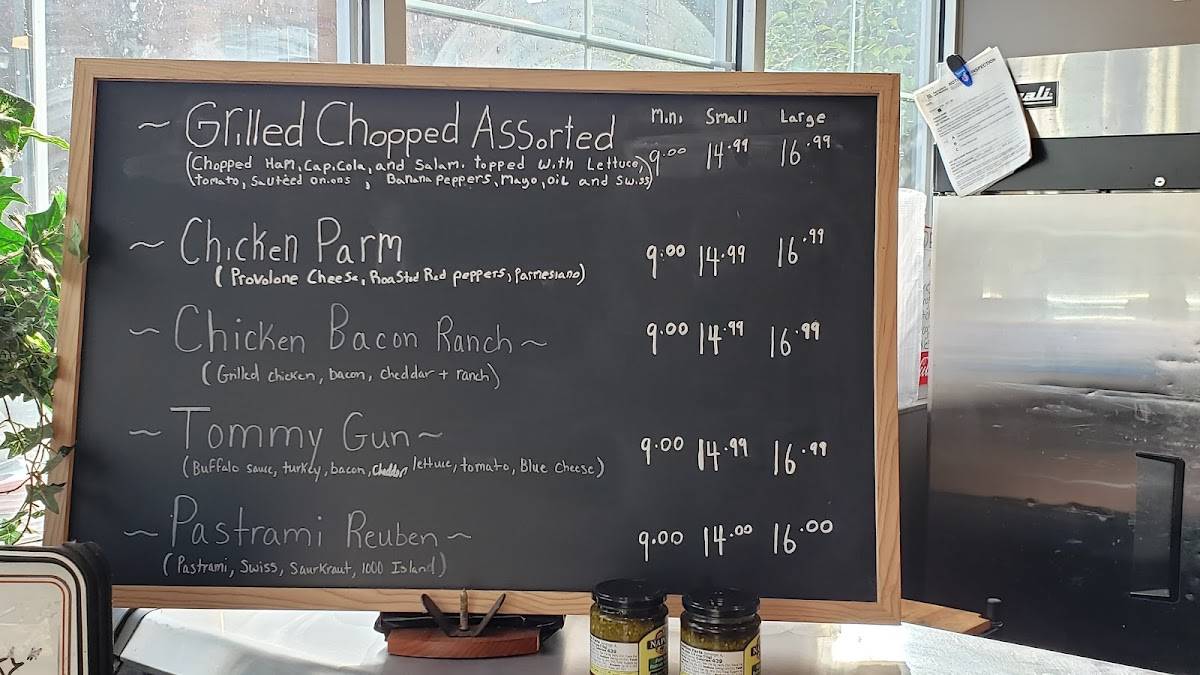 Mini Small Large
~ Grilled Chopped Assorted 9.00 14.99 16.99
(Chopped Ham, Cap.cola, and Salami topped with Lettuce,
tomato, Sautéed onions, Banana Peppers, Mayo, oil and Swiss)
~ Chicken Parm 9.00 14.99 16.99
(Provolone Cheese, Roasted Red peppers, Parmesiano)
~ Chicken Bacon Ranch ~ 9.00 14.99 16.99
(Grilled chicken, bacon, cheddar + ranch)
~ Tommy Gun ~ 9.00 14.99 16.99
(Buffalo sauce, turkey, bacon, Cheddar, lettuce, tomato, Blue Cheese)
~ Pastrami Reuben ~ 9.00 14.00 16.00
(Pastrami, Swiss, Saurkraut, 1000 Island)
INSPECTION